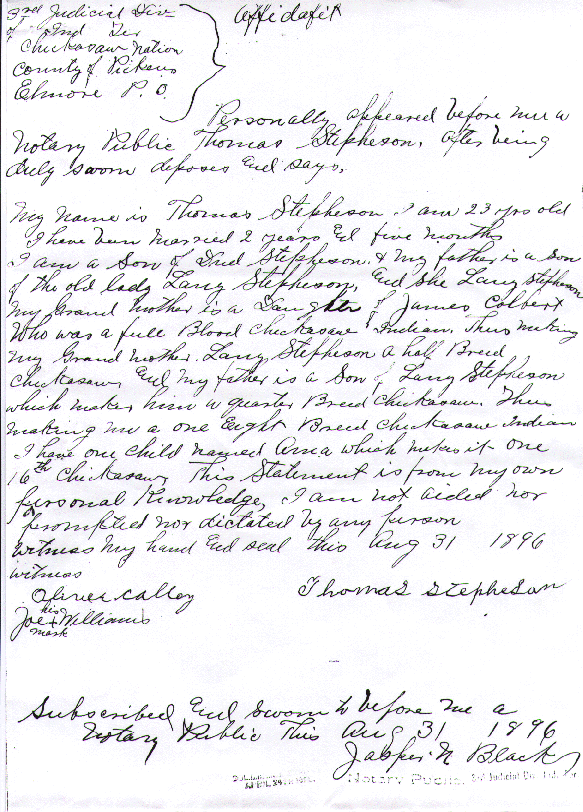 3rd Judicial Div
of Ind Ter
Chickasaw Nation
County of Pickens
Elmore P. O.
Affidafit
Personally appeared before me a
Notary Public Thomas Stepheson, after being
duly sworn deposes End says,
My Name is Thomas Stepheson. I am 23 yrs old
I have been Married 2 years Ed five months
I am a Son of Dud Stepheson. & My father is a Son
of the old lady Lany Stepheson, End She Lany Stepheson
My Grand Mother is a Daughter of James Colbert
Who was a full Blood Chickasaw Indian. Thus making
My Grand Mother Lany Stepheson a half Breed
Chickasaw, End My father is a Son of Lany Stepheson
which makes him a quarter Breed Chickasaw. Thus
making me a one Eight Breed Chickasaw Indian
I have one child named which makes it one
16th Chickasaw, This Statement is from my own
personal Knowledge, I am not aided nor
prompted nor dictated by any person
Witness My hand End seal This Aug 31 1896
witness
Oliver Calley
Thomas Stepheson
his
Joe x Williams
mark
Subscribed End sworn to before me a
Notary Public This Aug 31 1896
Jasper N Black
Notary Public 3rd Judicial Div. Ind. Ter